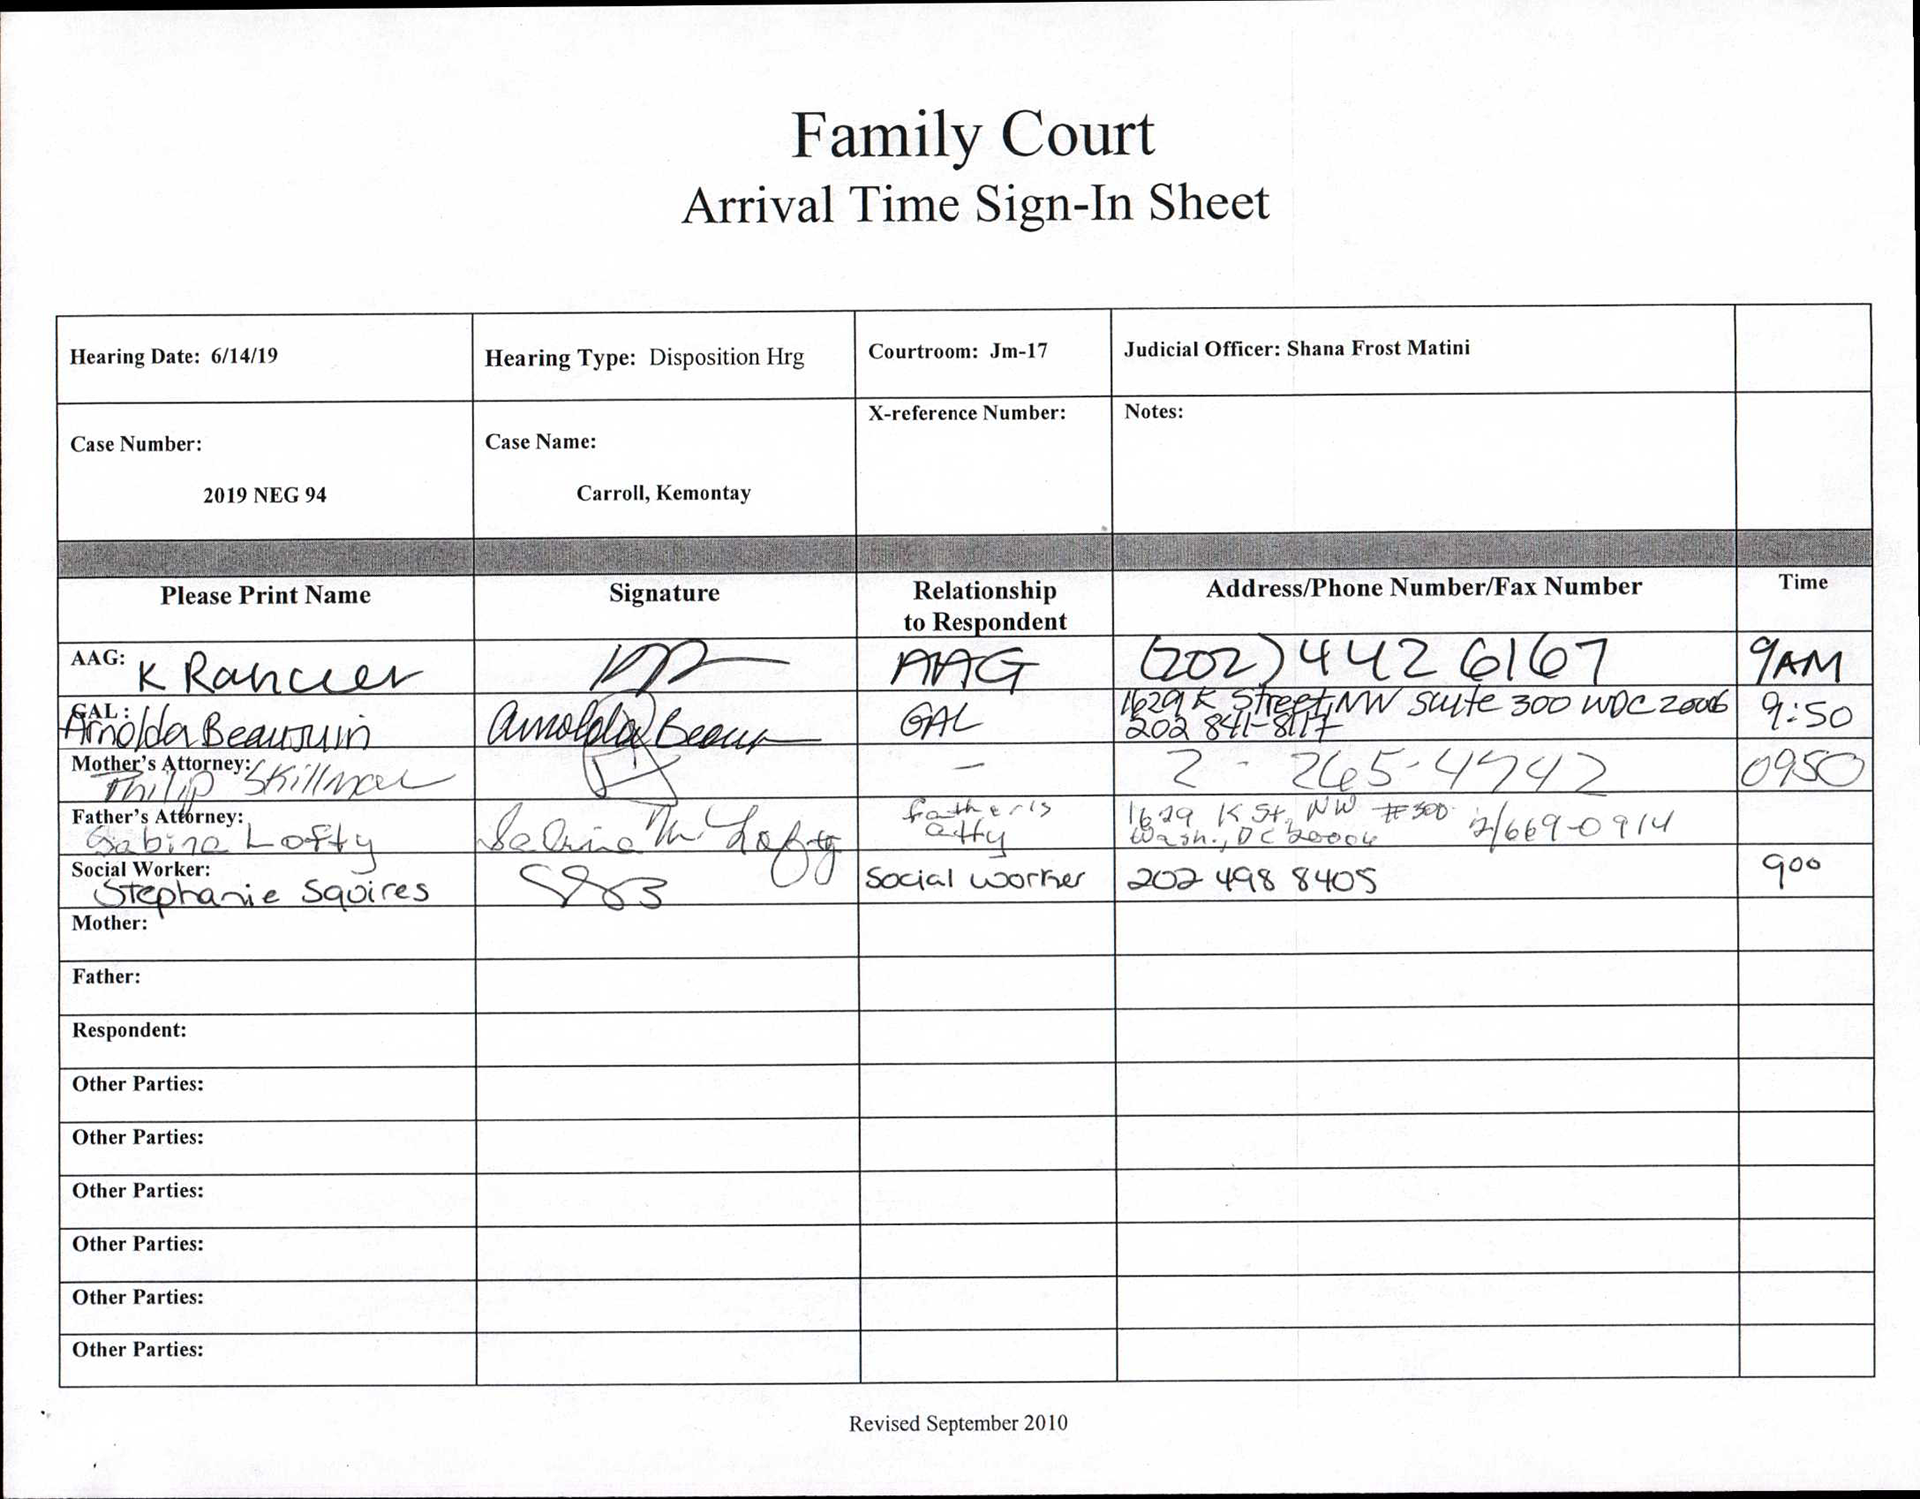 Family Court
Arrival Time Sign-In Sheet
Hearing Date: 6/14/19
Hearing Type: Disposition Hrg
Courtroom: Jm-17
Judicial Officer: Shana Frost Matini
Case Number:
2019 NEG 94
Case Name:
Carroll, Kemontay
X-reference Number:
Notes:
Please Print Name
Signature
Relationship
to Respondent
Address/Phone Number/Fax Number
Time
AAG: K Rancier
AAG
(202) 442 6167
9AM
GAL:
Arnolda Beaujuin
Arnolda Beau
GAL
1629 K Street, NW Suite 300 WDC 20006
202 841-8117
9:50
Mother's Attorney:
Philip Skillman
—
2 - 265-4742
0950
Father's Attorney:
Sabina Lofty
Sabrina M. Lofty
father's
atty
1629 K St, NW #300
Wash., DC 20006
2/669-0914
Social Worker:
Stephanie Squires
Social worker
202 498 8405
900
Mother:
Father:
Respondent:
Other Parties:
Other Parties:
Other Parties:
Other Parties:
Other Parties:
Other Parties:
Revised September 2010